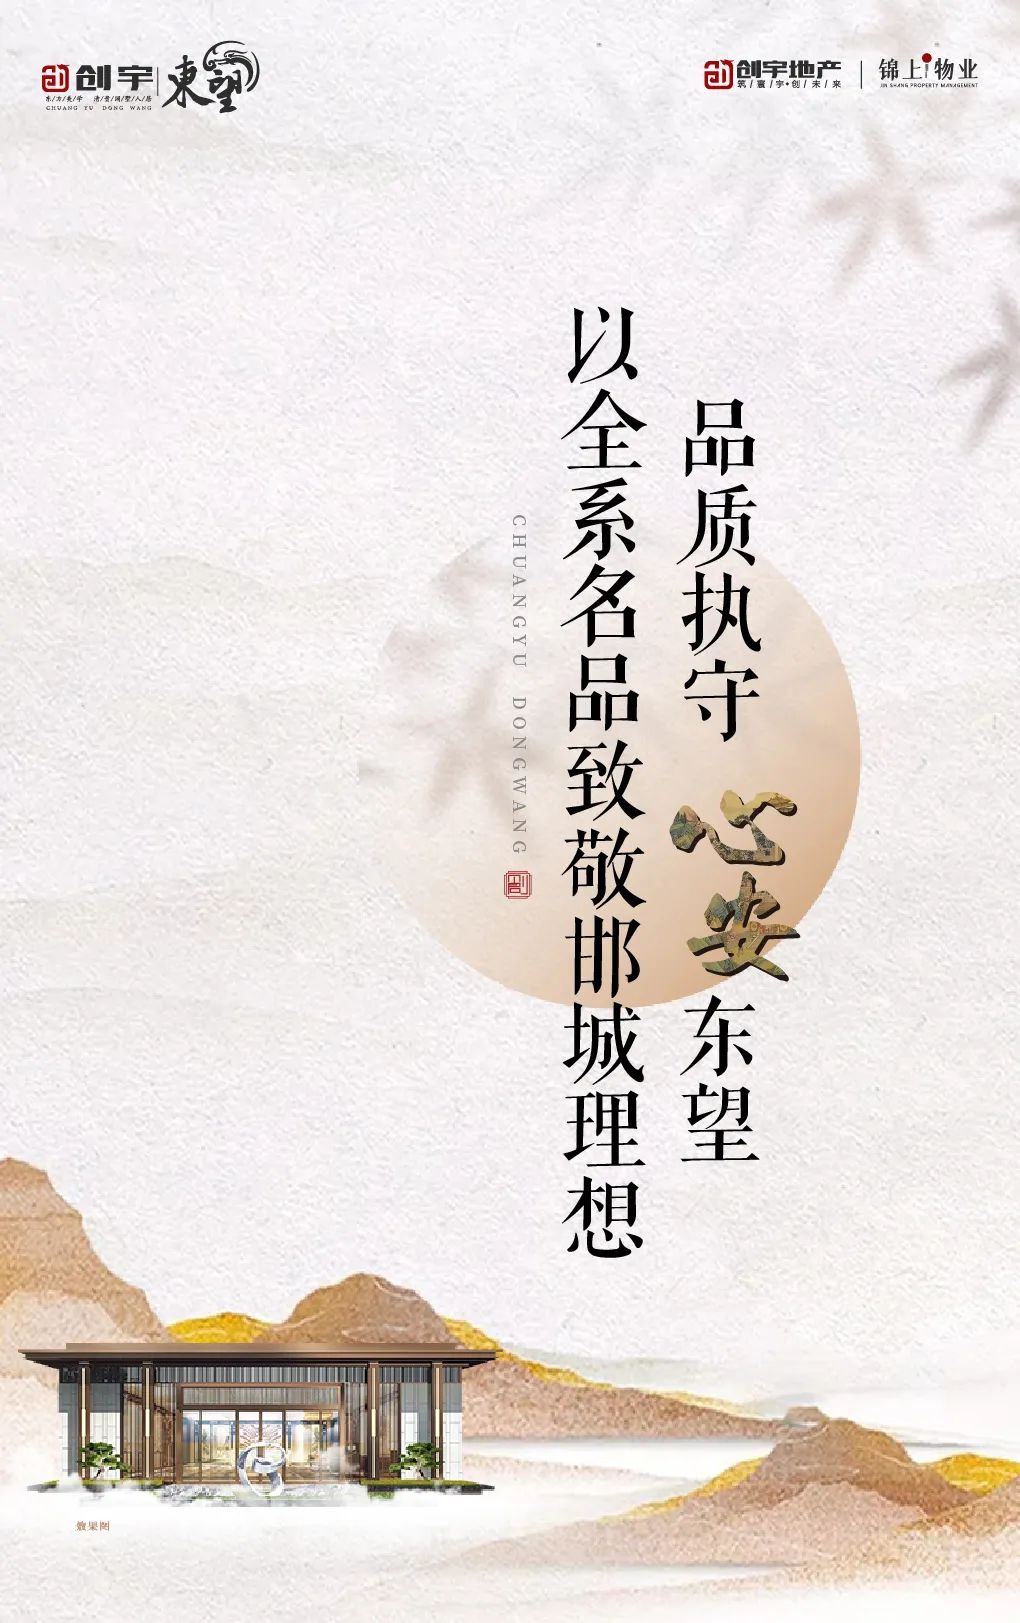 创宇
東望
东/方/美/学 清/贵/湖/墅/人/居
CHUANG YU DONG WANG
创宇地产
筑/寰/宇·创/未/来
锦上物业
JIN SHANG PROPERTY MANAGEMENT
品质执守 心安东望
以全系名品致敬邯城理想
CHUANGYU DONGWANG
创
效果图